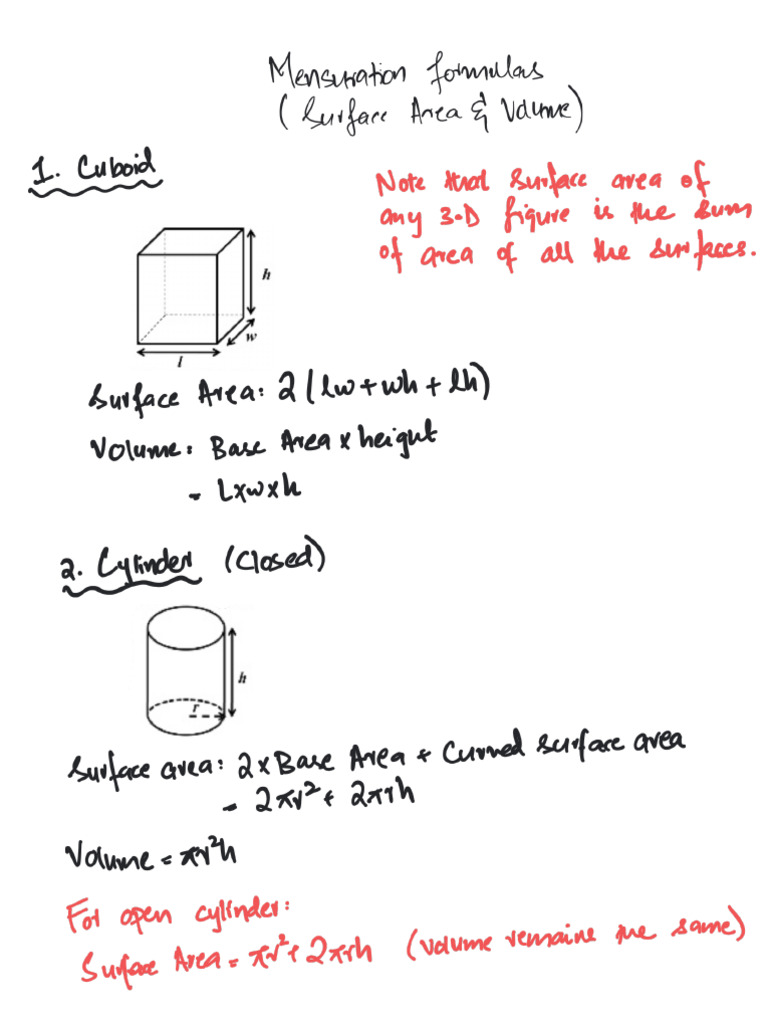 Mensuration formulas
(Surface Area & Volume)
1. Cuboid
Note that surface area of
any 3-D figure is the sum
of area of all the surfaces.
h
w
l
Surface Area: 2(lw+wh+lh)
Volume: Base Area x height
= Lxwxh
2. Cylinder (Closed)
h
r
Surface area: 2xBase Area + Curved surface area
= 2πr² + 2πrh
Volume = πr²h
For open cylinder:
Surface Area = πr²+ 2πrh (volume remains the same)